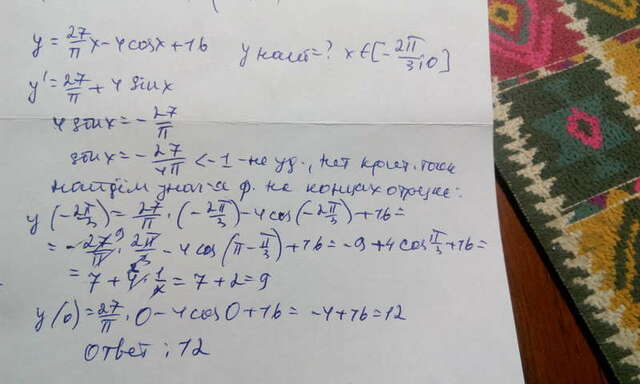 y = 27/π x - 4cosx + 16 y наиб = ? x ∈ [-2π/3; 0]
y' = 27/π + 4 sinx
4 sinx = - 27/π
sinx = - 27/4π < -1 - не уд., нет крит. точек
найдём знач-я ф. на концах отрезка:
y(-2π/3) = 27/π · (-2π/3) - 4cos(-2π/3) + 16 =
= - 27 9/π · 2π/3 - 4cos(π - π/3) + 16 = -9 + 4cos π/3 + 16 =
= 7 + 4 2 · 1/2 = 7 + 2 = 9
y(0) = 27/π · 0 - 4cos0 + 16 = -4 + 16 = 12
Ответ: 12